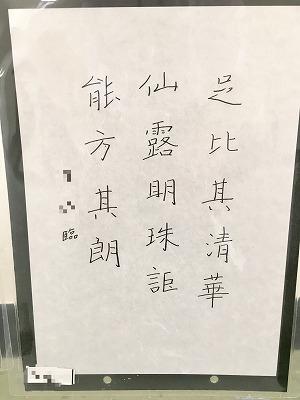 足比其清華
仙露明珠詎
能方其朗
臨